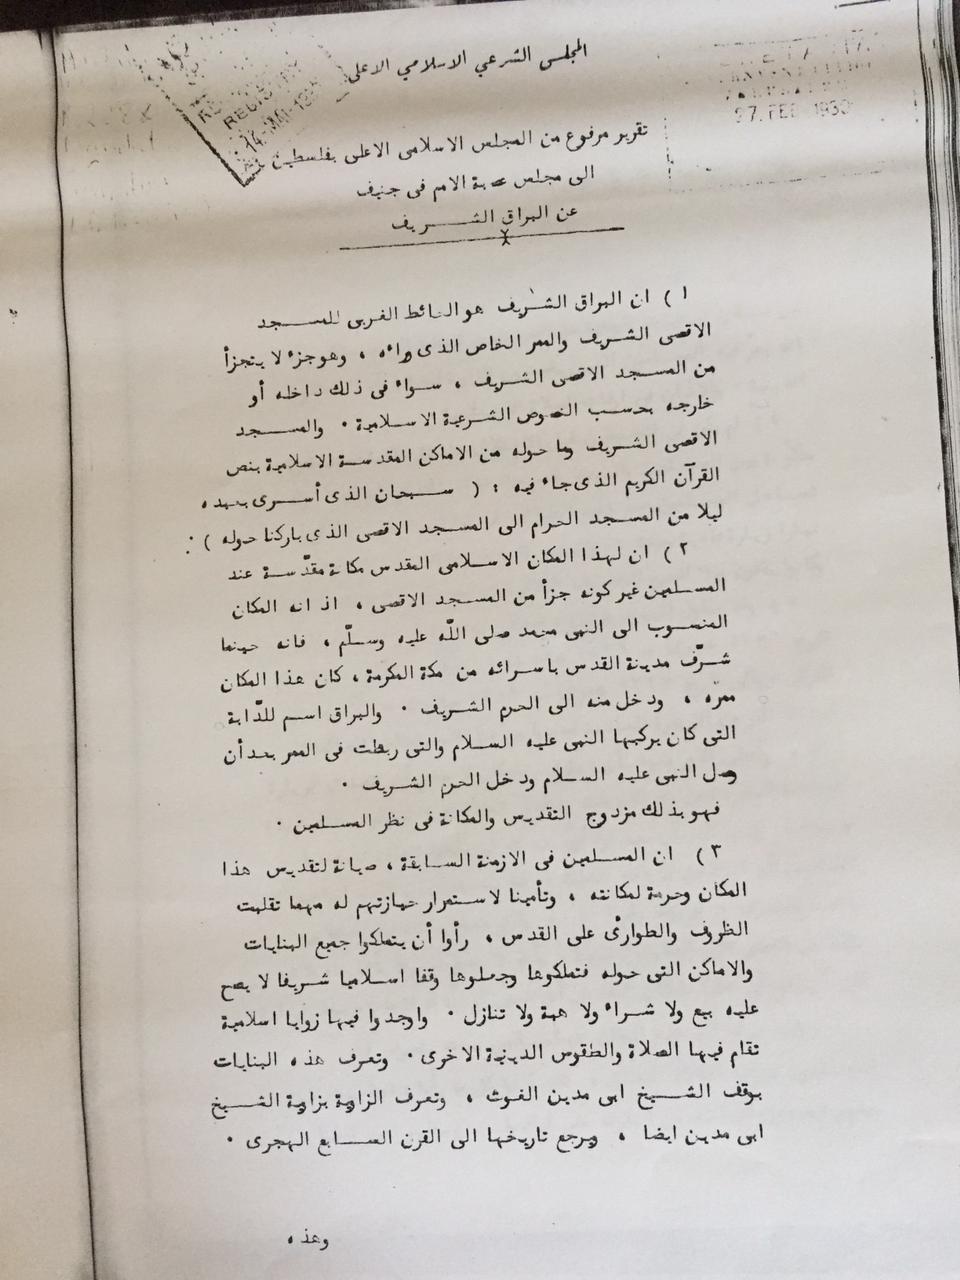 المجلس الشرعي الاسلامي الاعلى
REGISTRY
27. FEB 1930
تقرير مرفوع من المجلس الاسلامى الاعلى بفلسطين
الى مجلس عصبة الامم فى جنيف
عن البراق الشـــريف
١) ان البراق الشريف هو الحائط الغربى للمسجد
الاقصى الشريف والممر الخاص الذى وراءه ، وهو جزء لا يتجزأ
من المسجد الاقصى الشريف ، سواء فى ذلك داخله أو
خارجه بحسب النصوص الشرعية الاسلامية . والمسجد
الاقصى الشريف وما حوله من الاماكن المقدسة الاسلامية بنص
القرآن الكريم الذى جاء فيه : ( سبحان الذى أسرى بعبده
ليلا من المسجد الحرام الى المسجد الاقصى الذى باركنا حوله ) .
٢) ان لهذا المكان الاسلامى المقدس مكانة مقدّسة عند
المسلمين غير كونه جزأ من المسجد الاقصى ، اذ انه المكان
المنسوب الى النبى محمد صلى اللّه عليه وسلّم ، فانه حينما
شرّف مدينة القدس باسرائه من مكة المكرمة ، كان هذا المكان
ممرّه ، ودخل منه الى الحرم الشريف . والبراق اسم للدّابة
التى كان يركبها النبى عليه السلام والتى ربطت فى الممر بعد أن
وصل النبى عليه السلام ودخل الحرم الشريف .
فهو بذلك مزدوج التقديس والمكانة فى نظر المسلمين .
٣) ان المسلمين فى الازمنة السابقة ، صيانة لتقديس هذا
المكان وحرمة لمكانته ، وتأمينا لاستمرار حيازتهم له مهما تقلبت
الظروف والطوارئ على القدس ، رأوا أن يتملكوا جميع البنايات
والاماكن التى حوله فتملكوها وجعلوها وقفا اسلاميا شريفا لا يصح
عليه بيع ولا شراء ولا هبة ولا تنازل . واوجدوا فيها زوايا اسلامية
تقام فيها الصلاة والطقوس الدينية الاخرى . وتعرف هذه البنايات
بوقف الشيخ ابى مدين الغوث ، وتعرف الزاوية بزاوية الشيخ
ابى مدين ايضا ، ويرجع تاريخها الى القرن السابع الهجرى .
وهذه